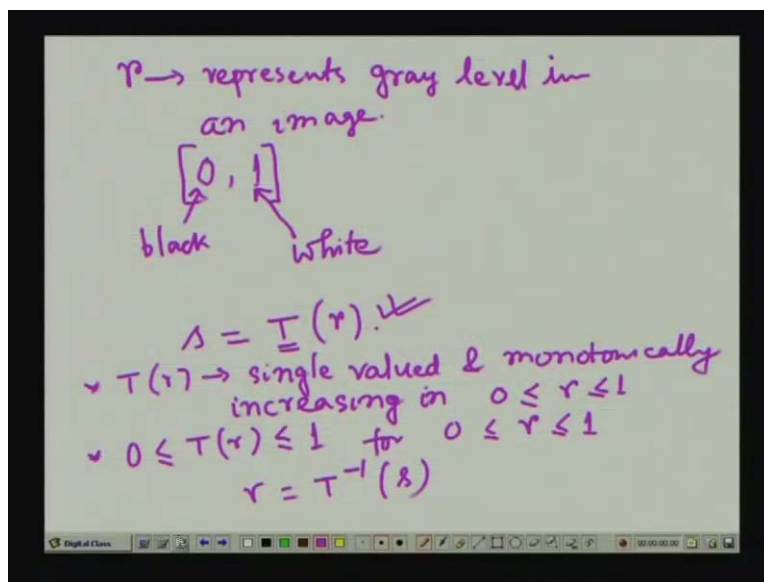 r → represents gray level in
an image.
[0, 1]
black white
s = T(r).
* T(r) → single valued & monotonically
increasing in 0 ≤ r ≤ 1
* 0 ≤ T(r) ≤ 1 for 0 ≤ r ≤ 1
r = T⁻¹(s)
Digital Class 00:00:00:00